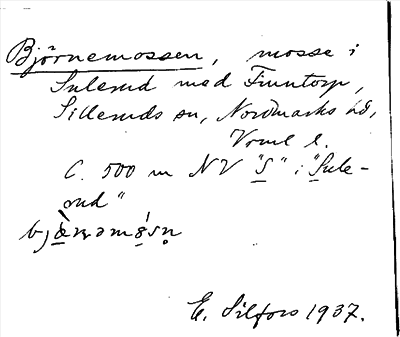 Björnemossen, mosse i
Sulerud med Finntorp,
Silleruds sn, Nordmarks hd,
Vrml l.
C. 500 m NV "S" i "Sule-
rud"
E. Silfors 1937.